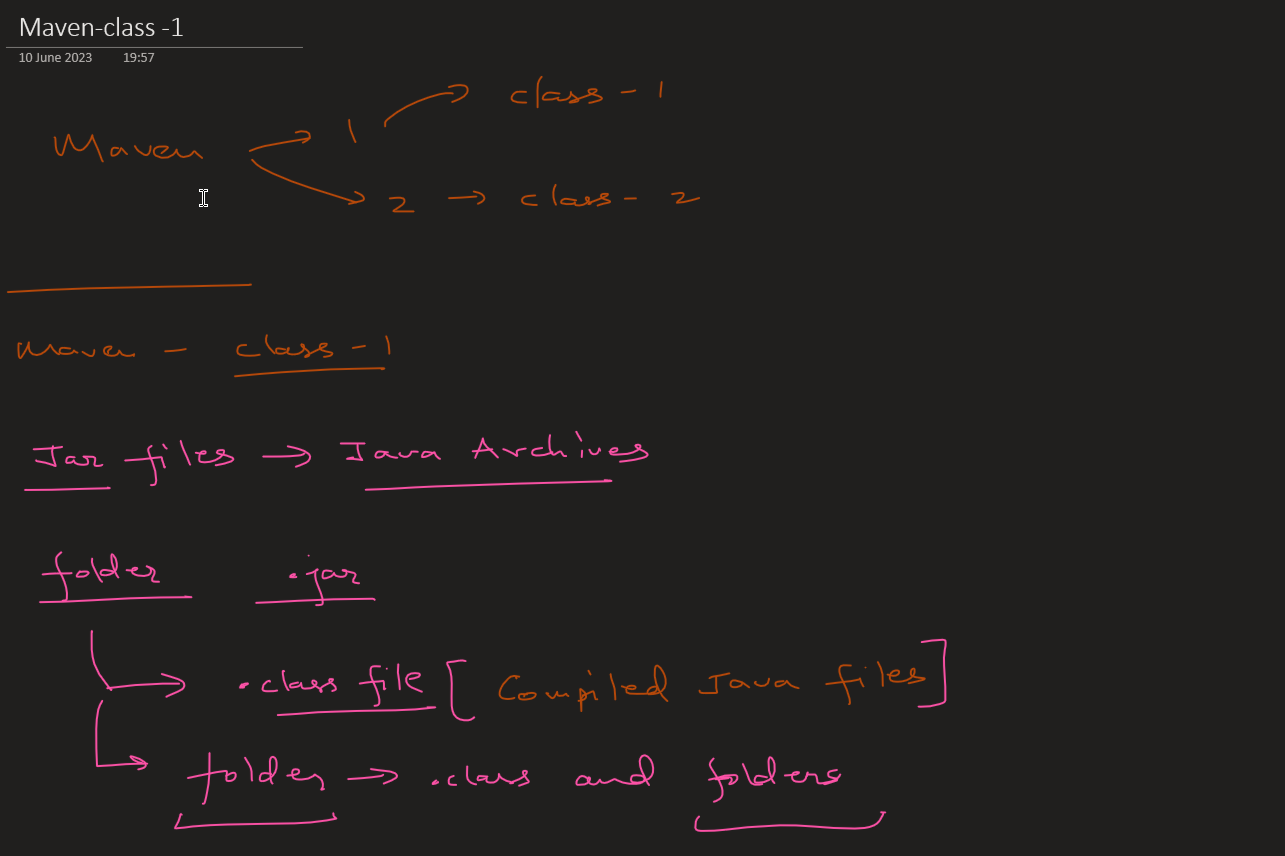 Maven-class -1
10 June 2023 19:57
Maven → 1 → class - 1
→ 2 → class - 2
Maven - class - 1
Jar files → Java Archives
folder .jar
→ .class file [ Compiled Java files ]
→ folder → .class and folders